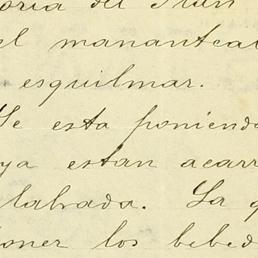 oria del Plan
el manantial
esquilmar.
Se esta poniendo
ya estan acarr
labrada. La q
oner los bebed